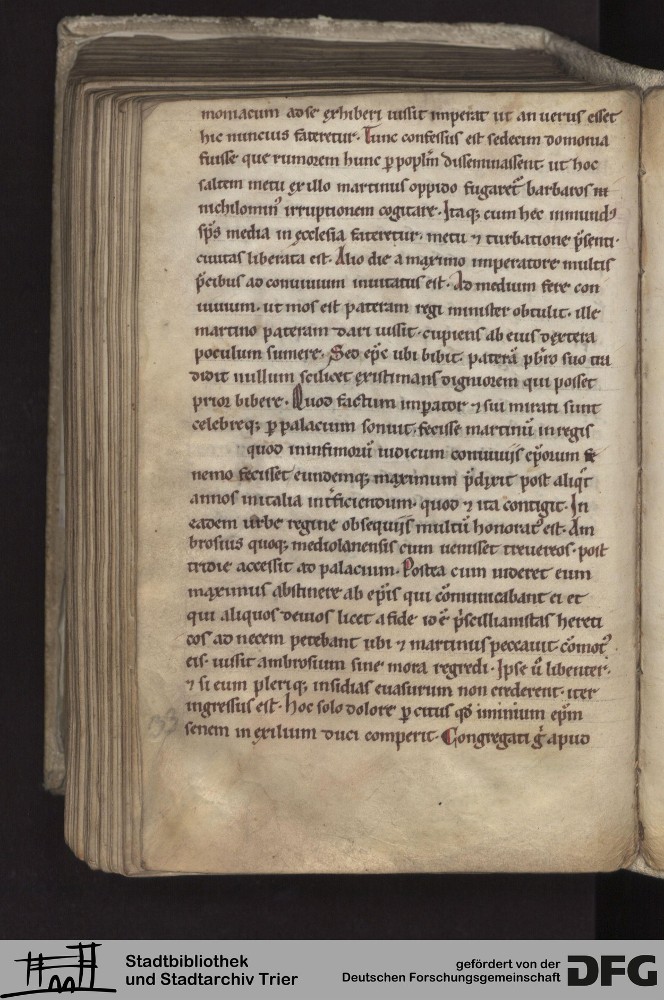 moniacum ad se exhiberi iussit imperat ut an uerus esset
hic nuncius fateretur. Tunc confessus est sedecim domonia
fuisse que rumorem hunc ꝑ popl̄m disseminassent. ut hoc
saltem metu ex illo martinus oppido fugaret᷑ barbaros in
nichilomin᷒ irruptionem cogitare. Itaq; cum hec inmund᷒
sp̄s media in ęcclesia fateretur. metu ⁊ turbatione p̄senti
ciuitas liberata est. Alio die a maximo imperatore multis
p̄cibus ad conuiuium inuitatus est. Ad medium fere con
uiuium. ut mos est pateram regi minister obtulit. ille
martino pateram dari iussit. cupiens ab eius dextera
poculum sumere. Sed ep̄c ubi bibit. paterā pb̄ro suo tra
didit nullum scilicet existimans digniorem qui posset
prior bibere. Quod factum imp̄ator ⁊ sui mirati sunt
celebreq; ꝑ palacium sonuit. fecisse martinū in regis
quod in infimorū iudicum conuiuijs ep̄orum fe
nemo fecisset eundemq; maximum p̄dixit post aliq̄t
annos in italia int̄ficiendum. quod ⁊ ita contigit. In
eadem urbe regine obsequijs multū honorat᷒ est. Am
brosius quoq; mediolanensis cum uenisset treuereos. post
tridie accessit ad palacium. Postea cum uideret eum
maximus abstinere ab ep̄is qui cōmunicabant ei et
qui aliquos deuios licet a fide id ē p̄scillianistas hereti
cos ad necem petebant ubi ⁊ martinus peccauit. cōmot᷒
eis. iussit ambrosium sine mora regredi. Ipse ū libenter.
⁊ si eum pleriq; insidias euasurum non crederent. iter
ingressus est. hoc solo dolore ꝑcitus qđ iminium ep̄m
senem in exilium duci comperit. Congregati g̊ apud
133
Stadtbibliothek
und Stadtarchiv Trier
gefördert von der
Deutschen Forschungsgemeinschaft
DFG